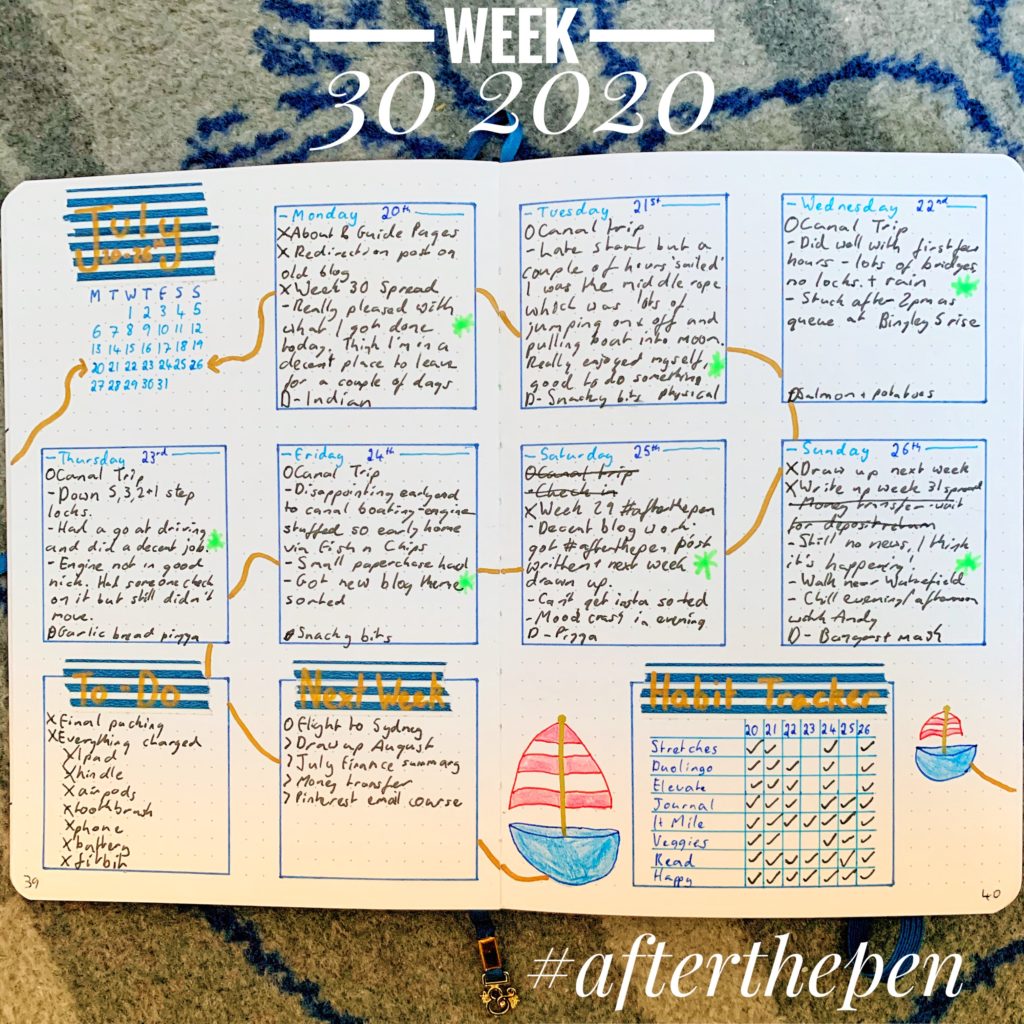 WEEK
30 2020
July
20-26th
M T W T F S S
1 2 3 4 5
6 7 8 9 10 11 12
13 14 15 16 17 18 19
20 21 22 23 24 25 26
27 28 29 30 31
- Monday 20th
X About & Guide Pages
X Redirection post on
old blog
X Week 30 Spread
- Really pleased with
what I got done
today. Think I'm in a
decent place to leave
for a couple of days
D - Indian
- Tuesday 21st
O Canal trip
- Late start but a
couple of hours 'sailed'
I was the middle rope
which was lots of
jumping on & off and
pulling boat into moor.
Really enjoyed myself,
good to do something
D - Snacky bits physical
- Wednesday 22nd
O Canal Trip
- Did well with first few
hours - lots of bridges
no locks. + rain
- Stuck after 2pm as
queue at Bingley 5 rise
D Salmon + potatoes
- Thursday 23rd
O Canal Trip
- Down 5, 3, 2 + 1 step
locks.
- Had a go at driving
and did a decent job.
- Engine not in good
nick. Had someone check
on it but still didn't
move.
D Garlic bread pizza
- Friday 24th
O Canal Trip
- Disappointing early end
to canal boating - engine
stuffed so early home
via Fish n Chips
- Small paperchase haul
- Got new blog theme
sorted
D Snacky bits
- Saturday 25th
O Canal trip
- Check in
X Week 29 #afterthepen
- Decent blog work.
got #afterthepen post
written + next week
drawn up.
- Can't get insta sorted
- Mood crash in evening
D - Pizza
- Sunday 26th
X Draw up next week
X Write up week 31 spread
- Money transfer - wait
for deposit return
- Still no news, I think
it's happening!
- Walk near Wakefield
- Chill evening/afternoon
with Andy
D - Bangers + mash
To-Do
X Final packing
X Everything charged
X Ipad
X kindle
X airpods
X toothbrush
X phone
X battery
X fitbit
Next Week
O Flight to Sydney
> Draw up August
> July Finance summary
> Money transfer
> Pinterest email course
Habit Tracker
20 21 22 23 24 25 26
Stretches ✓ ✓ ✓ ✓
Duolingo ✓ ✓ ✓ ✓ ✓
Elevate ✓ ✓ ✓ ✓ ✓
Journal ✓ ✓ ✓ ✓ ✓ ✓
1+ Mile ✓ ✓ ✓ ✓ ✓ ✓ ✓
Veggies ✓ ✓ ✓ ✓ ✓
Read ✓ ✓ ✓ ✓ ✓ ✓ ✓
Happy ✓ ✓ ✓ ✓ ✓ ✓ ✓
39
40
#afterthepen